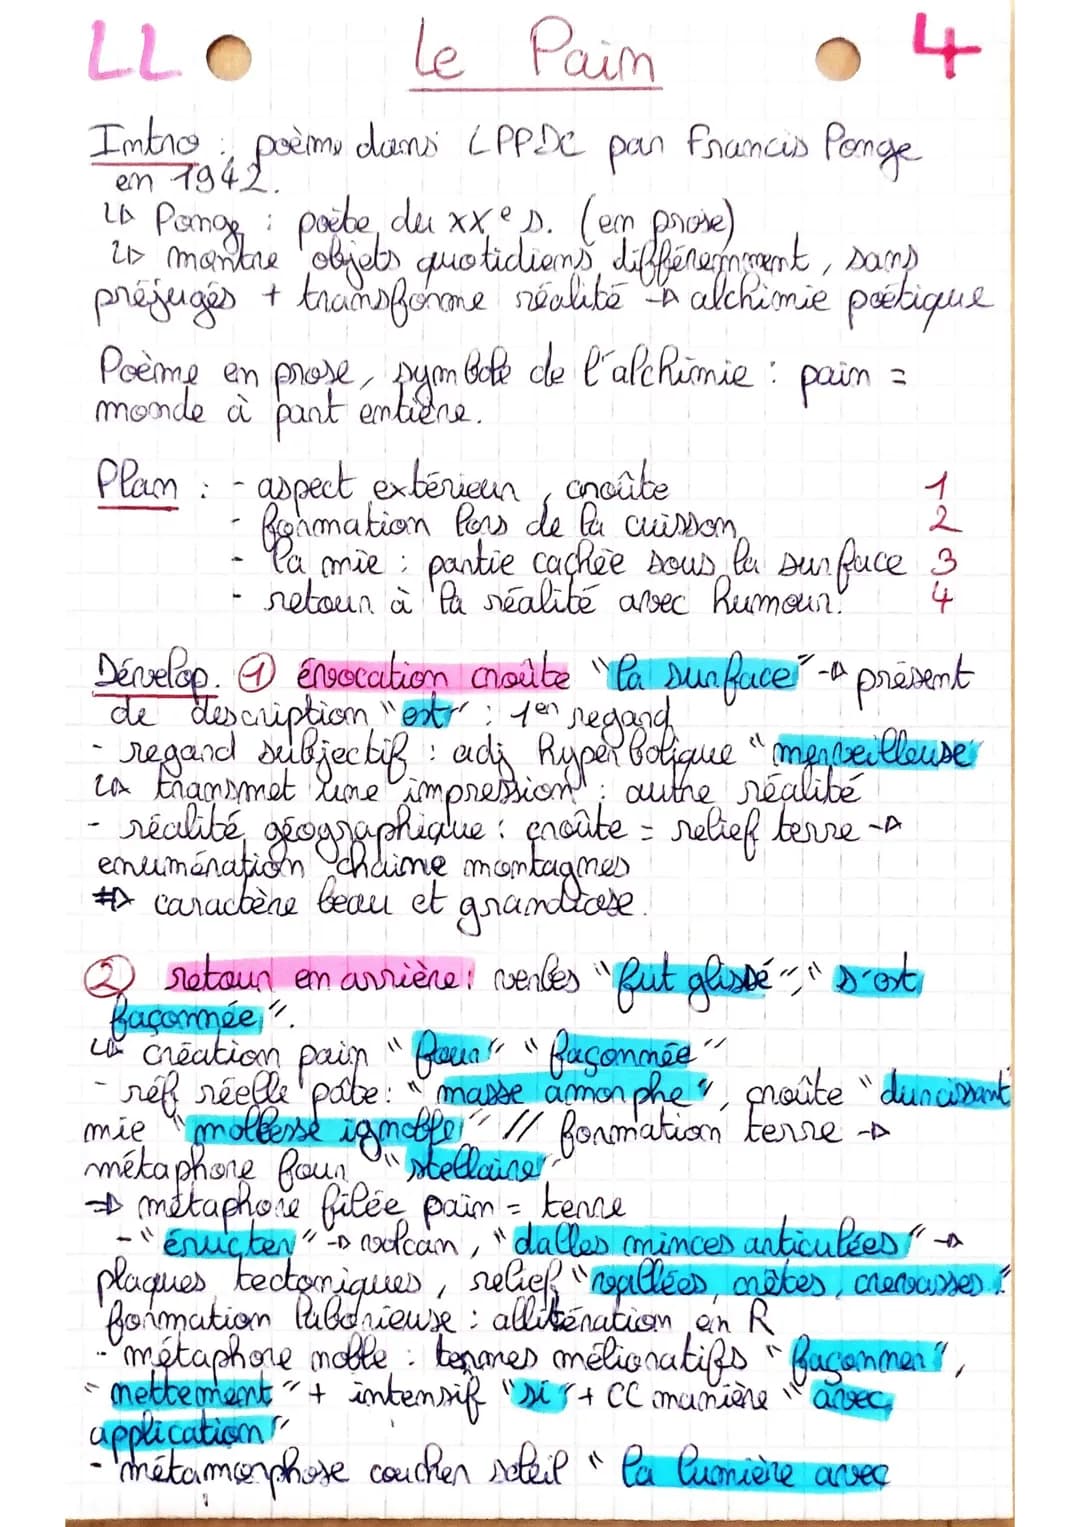 LL Le Pain 4
Intro : poème dans LPPDC par Francis Ponge
en 1942.
↳ Ponge : poète du XXe s. (en prose)
↳ montre objets quotidiens différemment, sans
préjugés + transforme réalité → alchimie poétique
Poème en prose, symbole de l'alchimie : pain =
monde à part entière.
Plan : - aspect extérieur, croûte 1
- formation lors de la cuisson 2
- la mie : partie cachée sous la surface 3
- retour à la réalité avec humour. 4
Dévelop. ① évocation croûte "la surface" → présent
de description "est" : 1er regard
- regard subjectif : adj hyperbolique "merveilleuse"
↳ transmet une "impression" : autre réalité
- réalité géographique : croûte = relief terre →
enumération chaine montagnes
⇒ caractère beau et grandiose.
② retour en arrière : verbes "fut glissé", "s'est
façonnée".
↳ création pain "four" "façonnée"
- réf réelle pâte : "masse amorphe", croûte "durcissant"
mie "mollesse ignoble" // formation terre →
métaphore four "stellaire"
⇒ métaphore filée pain = terre
- "éructer" → volcan, "dalles minces articulées" →
plaques tectoniques, relief "vallées, crêtes, crevasses"
formation laborieuse : allitération en R
- métaphore noble : termes mélioratifs "façonner",
"nettement" + intensif "si" + CC manière "avec
application"
- métamorphose coucher soleil "la lumière avec